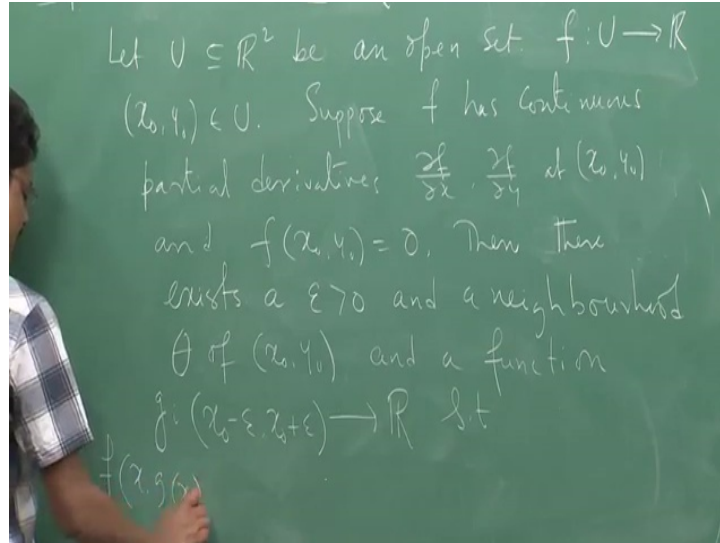 Let U ⊆ ℝ² be an open set. f : U → ℝ
(x₀, y₀) ∈ U. Suppose f has continuous
partial derivatives ∂f/∂x, ∂f/∂y at (x₀, y₀)
and f(x₀, y₀) = 0. Then there
exists a ε > 0 and a neighbourhood
θ of (x₀, y₀) and a function
g: (x₀-ε, x₀+ε) → ℝ s.t
f(x, g(x)